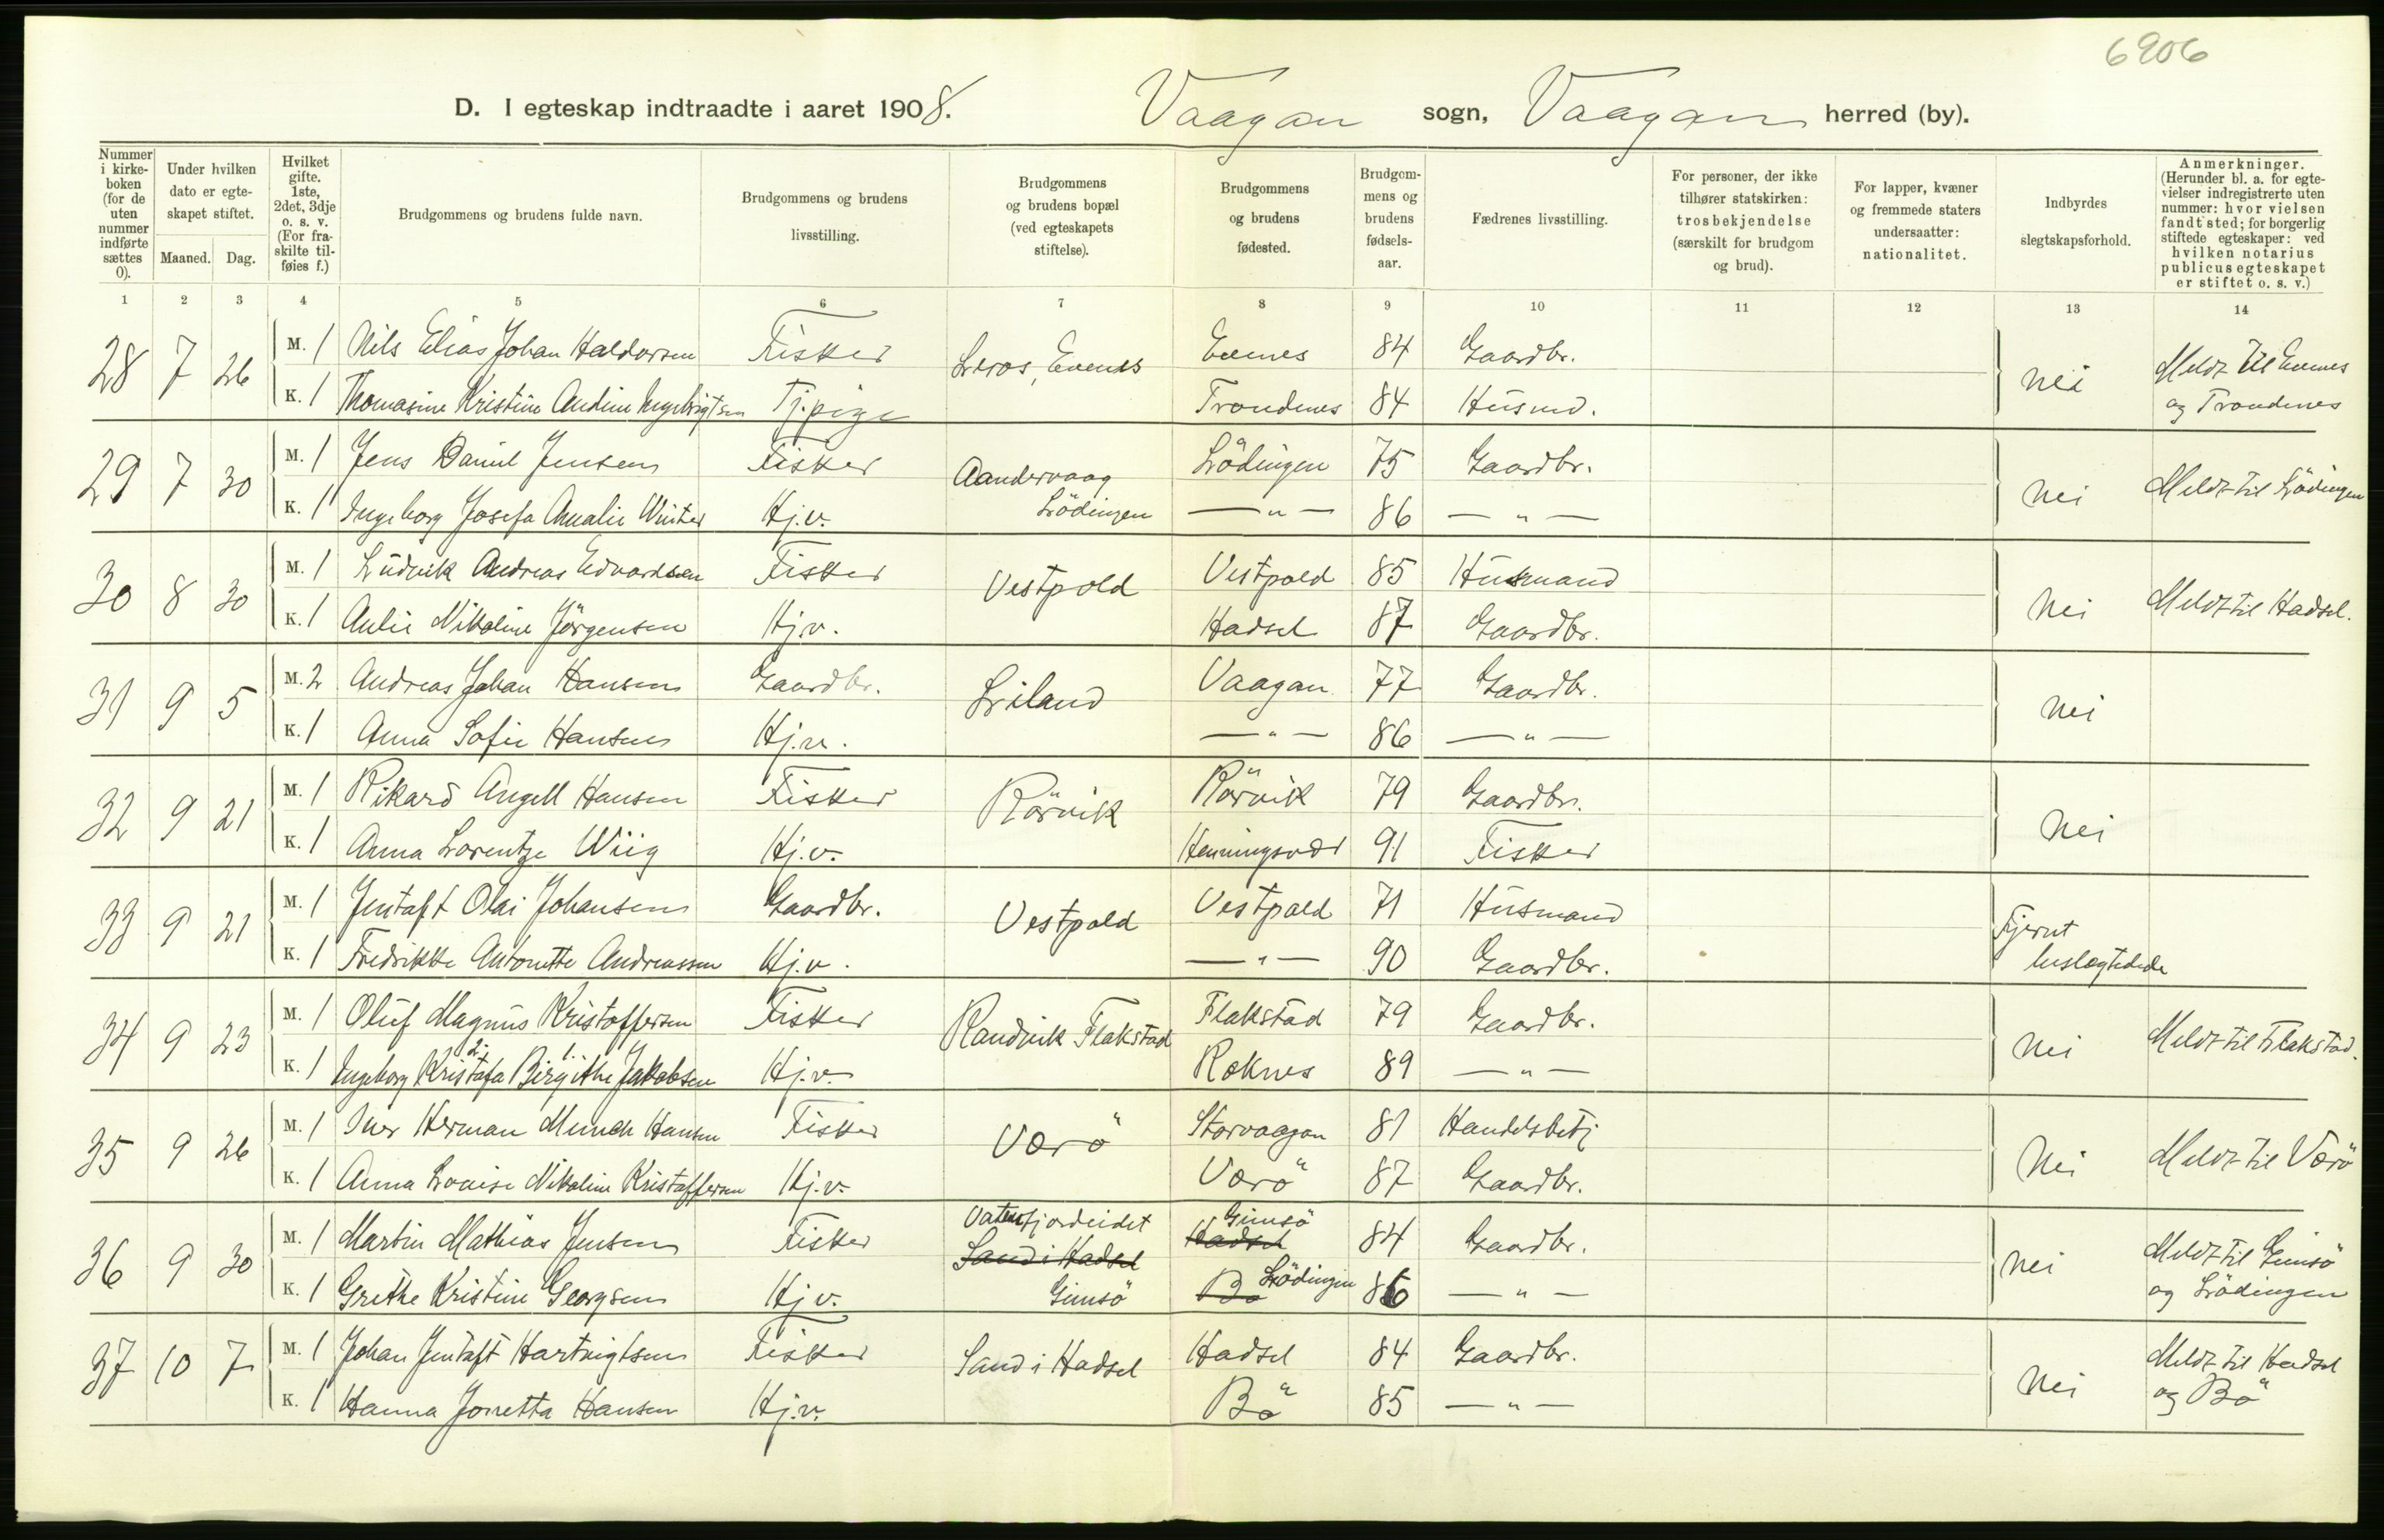 6906
D. I egteskap indtraadte i aaret 1908. Vaagan sogn, Vaagan herred (by).
Nummer i kirkeboken (for de uten nummer indførte sættes 0).
Under hvilken dato er egteskapet stiftet.
Maaned. Dag.
Hvilket gifte. 1ste, 2det, 3dje o. s. v. (For fraskilte tilføies f.)
Brudgommens og brudens fulde navn.
Brudgommens og brudens livsstilling.
Brudgommens og brudens bopæl (ved egteskapets stiftelse).
Brudgommens og brudens fødested.
Brudgommens og brudens fødselsaar.
Fædrenes livsstilling.
For personer, der ikke tilhører statskirken: trosbekjendelse (særskilt for brudgom og brud).
For lapper, kvæner og fremmede staters undersaatter: nationalitet.
Indbyrdes slegtskapsforhold.
Anmerkninger. (Herunder bl. a. for egtevielser indregistrerte uten nummer: hvor vielsen fandt sted; for borgerlig stiftede egteskaper: ved hvilken notarius publicus egteskapet er stiftet o. s. v.)
1 2 3 4 5 6 7 8 9 10 11 12 13 14
28 7 26 M. 1 Nils Elias Johan Haldorsen Fisker Leros, Evenes Evenes 84 Gaardbr. Nei Meldt til Evenes
K. 1 Thomasine Kristine Andine Ingebrigtsen Tj.pige Trondenes 84 Husmd. og Trondenes
29 7 30 M. 1 Jens Daniel Jensen Fisker Aandervaag Lödingen 75 Gaardbr. Nei Meldt til Lödingen
K. 1 Ingeborg Josefa Amalie Winter Hj.v. Lödingen — " — 86 — " —
30 8 30 M. 1 Ludvik Andreas Edvardsen Fisker Vestpold Vestpold 85 Husmand Nei Meldt til Hadsel.
K. 1 Aulie Nikoline Jörgensen Hj.v. Hadsel 87 Gaardbr.
31 9 5 M. 2 Andreas Johan Hansen Gaardbr. Liland Vaagan 77 Gaardbr. Nei
K. 1 Anna Sofie Hansen Hj.v. — " — 86 — " —
32 9 21 M. 1 Rikard Angell Hansen Fisker Rörvik Rörvik 79 Gaardbr. Nei
K. 1 Anna Lorentze Wiig Hj.v. Henningsvær 91 Fisker
33 9 21 M. 1 Jentaft Olai Johansen Gaardbr. Vestpold Vestpold 71 Husmand Fjernt
K. 1 Fredrikke Antonette Andreassen Hj.v. — " — 90 Gaardbr. beslægtede
34 9 23 M. 1 Oluf Magnus Kristoffersen Fisker Randvik Flakstad Flakstad 79 Gaardbr. Nei Meldt til Flakstad.
K. 1 Ingeborg Kristafa Birgithe Jakobsen Hj.v. Roknes 89 — " —
35 9 26 M. 1 Iver Herman Munch Hansen Fisker Værö Storvaagan 81 Handelsbetj Nei Meldt til Værö
K. 1 Anna Lovise Nikoline Kristoffersen Hj.v. Værö 87 Gaardbr.
36 9 30 M. 1 Martin Mathias Jensen Fisker Vatenfjordeidet Sand i Hadsel Gimsö Hadsel 84 Gaardbr. Nei Meldt til Gimsö
K. 1 Grethe Kristine Georgsen Hj.v. Gimsö Bø Lödingen 86 — " — og Lödingen
37 10 7 M. 1 Johan Jentaft Hartvigtsen Fisker Sand i Hadsel Hadsel 84 Gaardbr. Nei Meldt til Hadsel
K. 1 Hanna Jonetta Hansen Hj.v. Bö 85 — " — og Bö